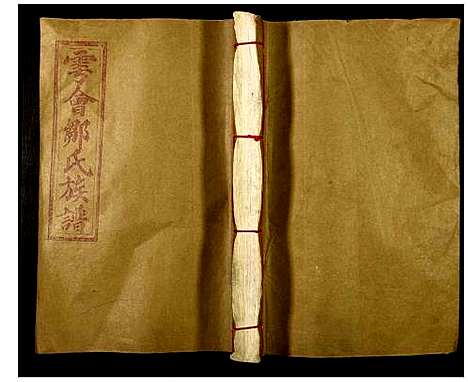 雲會鄒氏族譜